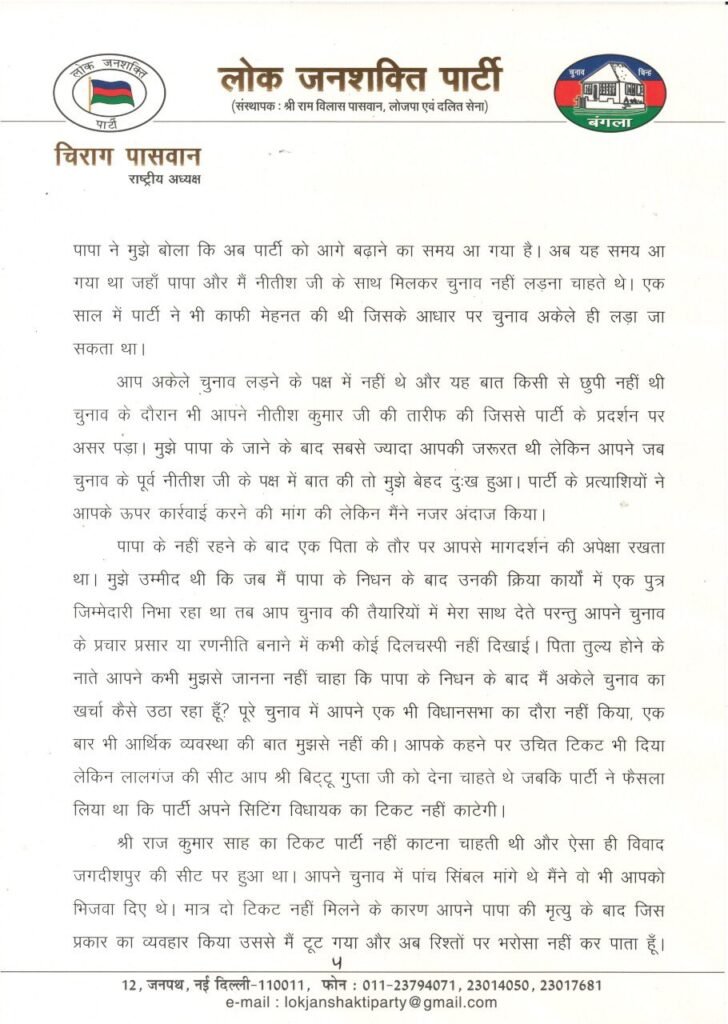 लोक जनशक्ति
पार्टी
लोक जनशक्ति पार्टी
(संस्थापक : श्री राम विलास पासवान, लोजपा एवं दलित सेना)
चुनाव चिन्ह
बंगला
चिराग पासवान
राष्ट्रीय अध्यक्ष
पापा ने मुझे बोला कि अब पार्टी को आगे बढ़ाने का समय आ गया है। अब यह समय आ
गया था जहाँ पापा और मैं नीतीश जी के साथ मिलकर चुनाव नहीं लड़ना चाहते थे। एक
साल में पार्टी ने भी काफी मेहनत की थी जिसके आधार पर चुनाव अकेले ही लड़ा जा
सकता था।
आप अकेले चुनाव लड़ने के पक्ष में नहीं थे और यह बात किसी से छुपी नहीं थी
चुनाव के दौरान भी आपने नीतीश कुमार जी की तारीफ की जिससे पार्टी के प्रदर्शन पर
असर पड़ा। मुझे पापा के जाने के बाद सबसे ज्यादा आपकी जरूरत थी लेकिन आपने जब
चुनाव के पूर्व नीतीश जी के पक्ष में बात की तो मुझे बेहद दुःख हुआ। पार्टी के प्रत्याशियों ने
आपके ऊपर कार्रवाई करने की मांग की लेकिन मैंने नजर अंदाज किया।
पापा के नहीं रहने के बाद एक पिता के तौर पर आपसे मागदर्शन की अपेक्षा रखता
था। मुझे उम्मीद थी कि जब मैं पापा के निधन के बाद उनकी क्रिया कार्यों में एक पुत्र
जिम्मेदारी निभा रहा था तब आप चुनाव की तैयारियों में मेरा साथ देते परन्तु आपने चुनाव
के प्रचार प्रसार या रणनीति बनाने में कभी कोई दिलचस्पी नहीं दिखाई। पिता तुल्य होने के
नाते आपने कभी मुझसे जानना नहीं चाहा कि पापा के निधन के बाद मैं अकेले चुनाव का
खर्चा कैसे उठा रहा हूँ? पूरे चुनाव में आपने एक भी विधानसभा का दौरा नहीं किया, एक
बार भी आर्थिक व्यवस्था की बात मुझसे नहीं की। आपके कहने पर उचित टिकट भी दिया
लेकिन लालगंज की सीट आप श्री बिट्टू गुप्ता जी को देना चाहते थे जबकि पार्टी ने फैसला
लिया था कि पार्टी अपने सिटिंग विधायक का टिकट नहीं काटेगी।
श्री राज कुमार साह का टिकट पार्टी नहीं काटना चाहती थी और ऐसा ही विवाद
जगदीशपुर की सीट पर हुआ था। आपने चुनाव में पांच सिंबल मांगे थे मैंने वो भी आपको
भिजवा दिए थे। मात्र दो टिकट नहीं मिलने के कारण आपने पापा की मृत्यु के बाद जिस
प्रकार का व्यवहार किया उससे मैं टूट गया और अब रिश्तों पर भरोसा नहीं कर पाता हूँ।
12, जनपथ, नई दिल्ली-110011, फोन : 011-23794071, 23014050, 23017681
e-mail : lokjanshaktiparty@gmail.com